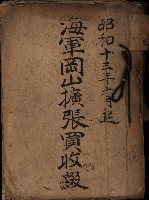 昭和十三年六月起
海軍岡山擴張買收綴